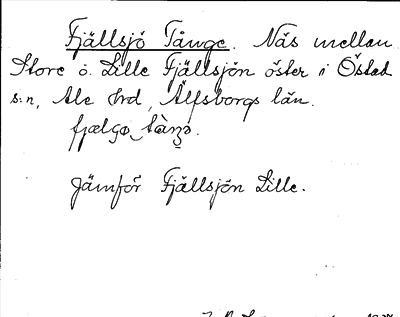 Fjällsjö Tånge. Näs mellan
Store o. Lille Fjällsjön öster i Östad
s:n, Ale hrd, Älfsborgs län.
Jämför Fjällsjön Lille.